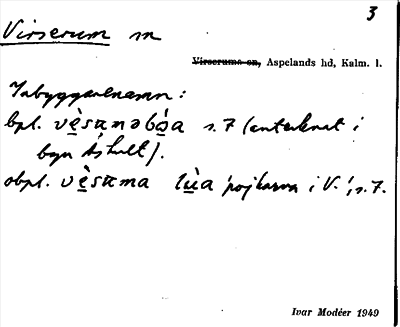 3
Virserum sn
Virserums sn, Aspelands hd, Kalm. l.
Inbyggarenamn:
bpl. vèsᴂnəbóa s. 7 (antecknat i
byn Åshult).
obpl. vèsᴂma lùa 'pojkarna i V.', s. 7.
Ivar Modéer 1949